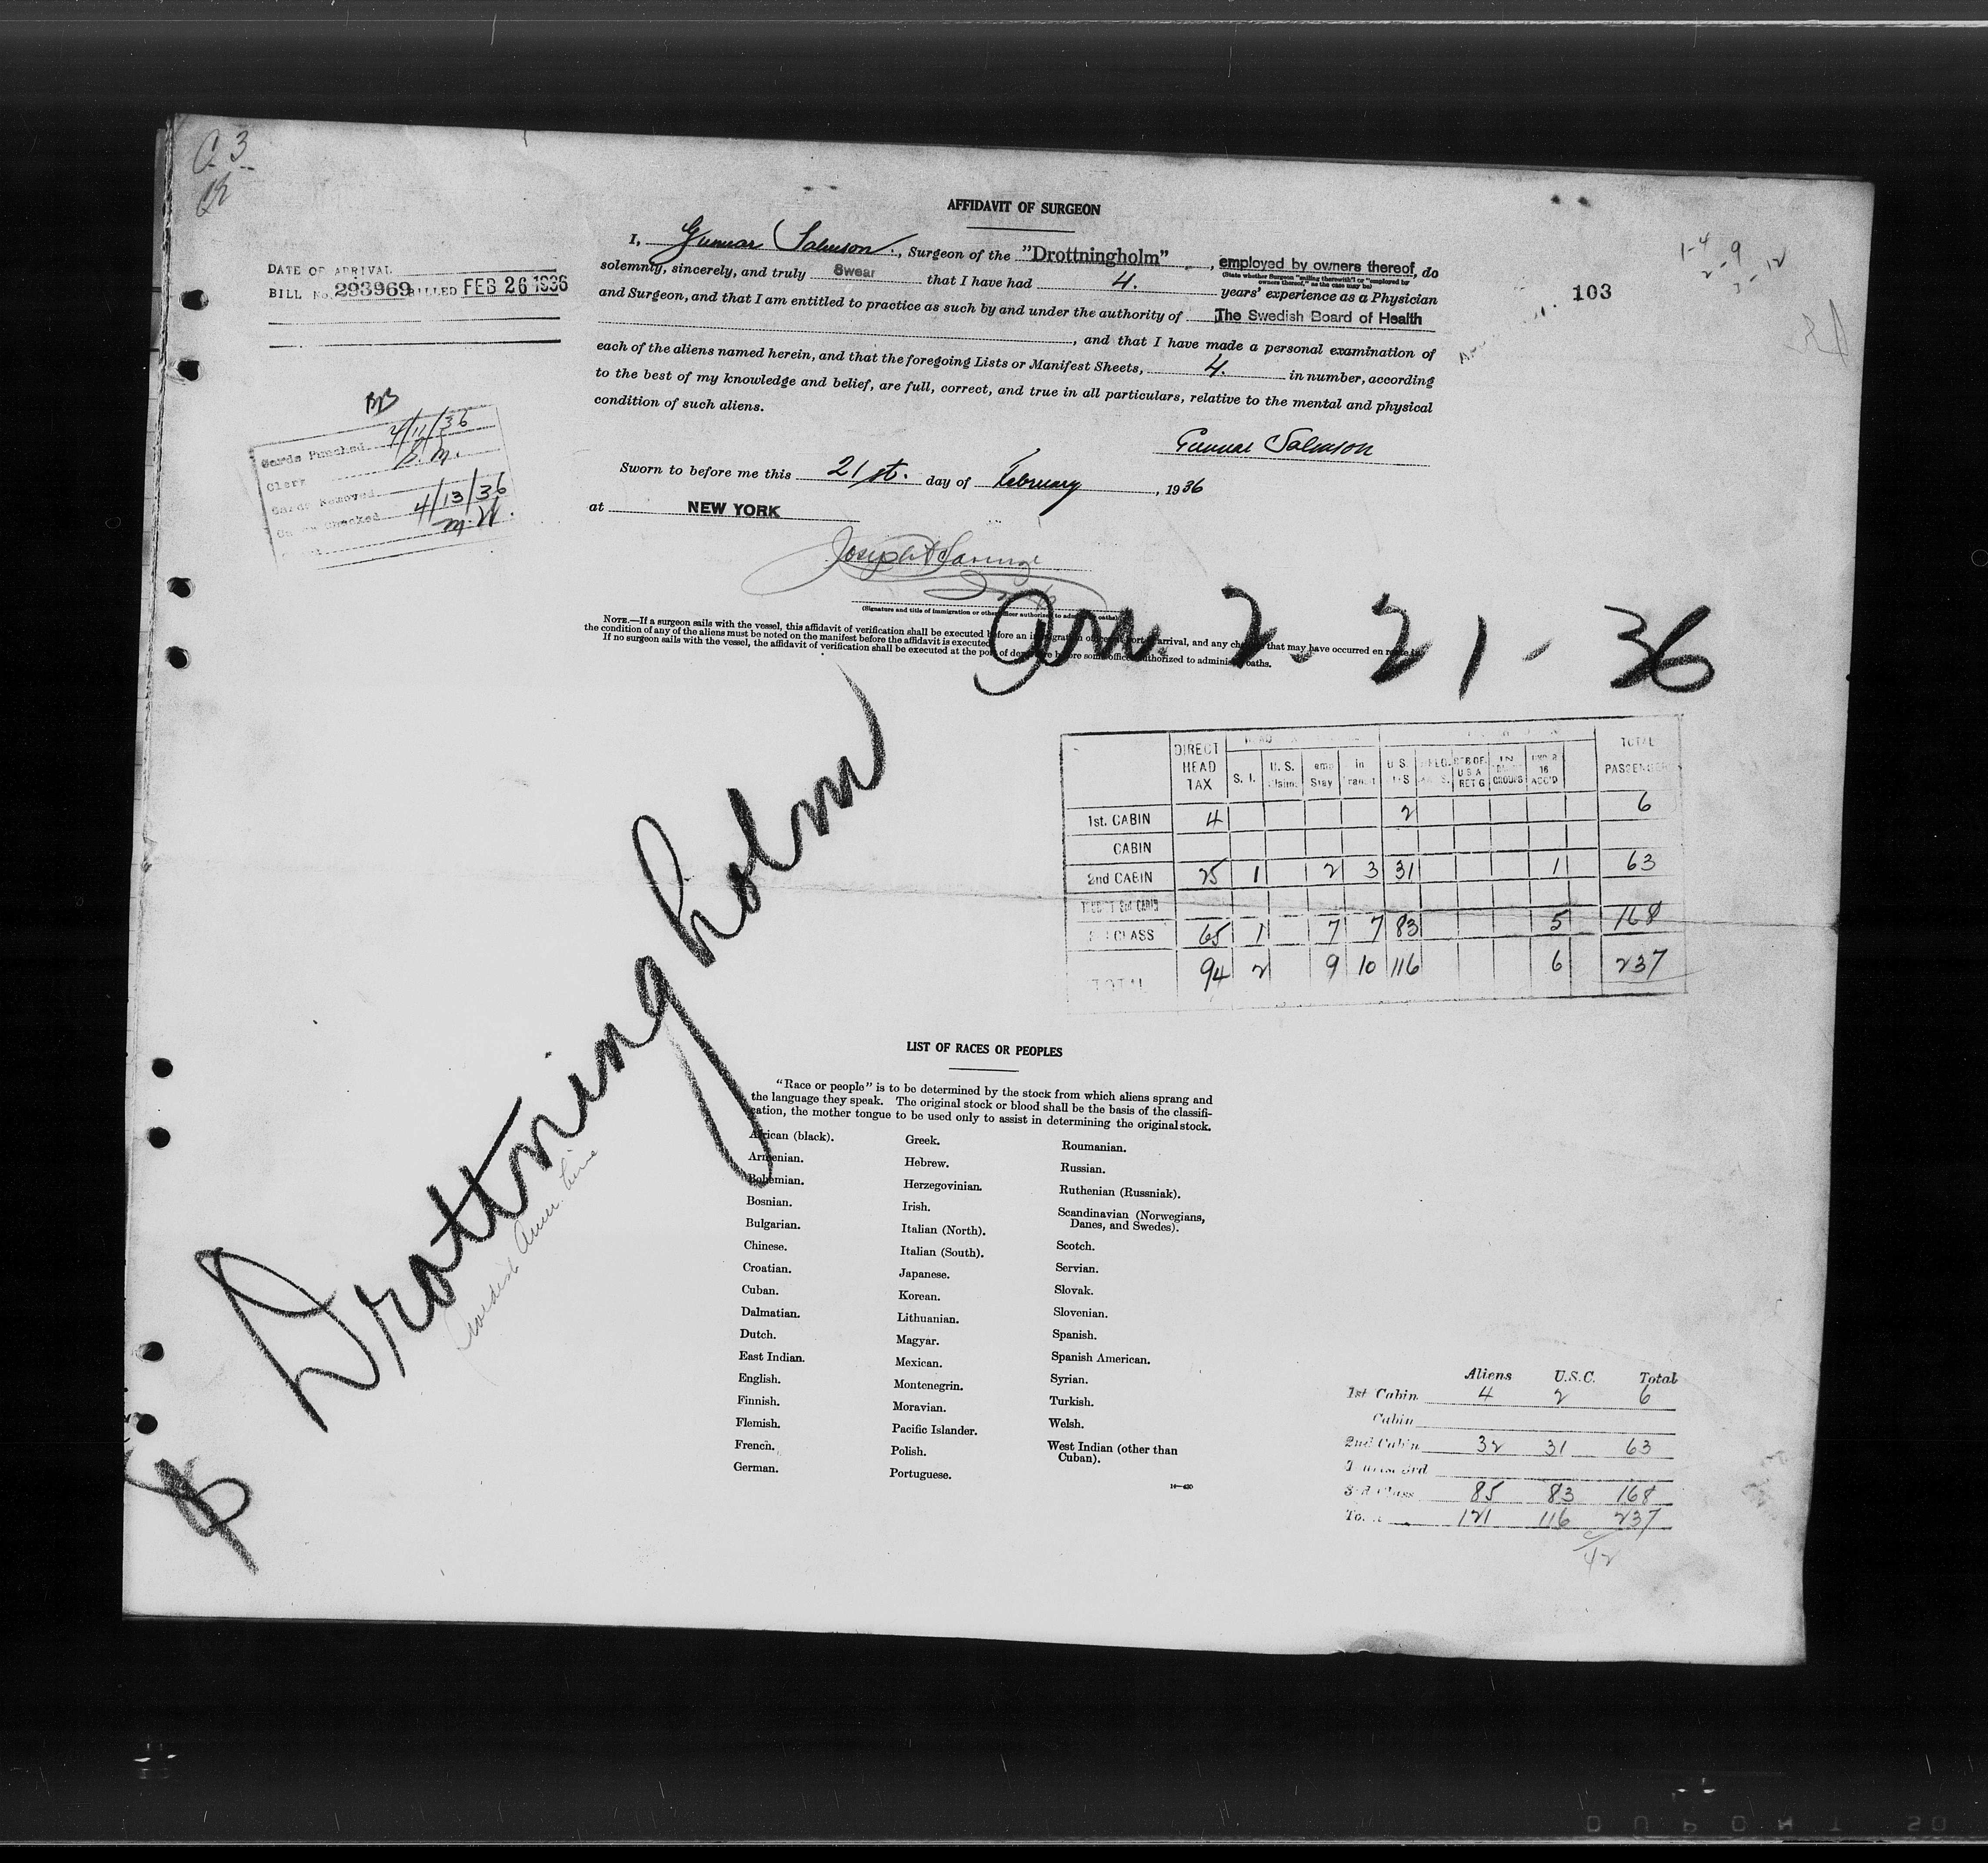 C 3
DATE OF ARRIVAL
BILL No. 293969 BILLED FEB 26 1936
AFFIDAVIT OF SURGEON
I, Gunnar Salmson, Surgeon of the "Drottningholm", employed by owners thereof, do
(State whether Surgeon "sailing therewith" or "employed by owners thereof," as the case may be)
solemnly, sincerely, and truly Swear that I have had 4. years' experience as a Physician
and Surgeon, and that I am entitled to practice as such by and under the authority of The Swedish Board of Health
, and that I have made a personal examination of
each of the aliens named herein, and that the foregoing Lists or Manifest Sheets, 4. in number, according
to the best of my knowledge and belief, are full, correct, and true in all particulars, relative to the mental and physical
condition of such aliens.
Gunnar Salmson
Sworn to before me this 21st. day of February, 1936
at NEW YORK
(Signature and title of immigration or other officer authorized to administer oaths)
NOTE.—If a surgeon sails with the vessel, this affidavit of verification shall be executed before an immigration officer at port of arrival, and any changes that may have occurred en route in
the condition of any of the aliens must be noted on the manifest before the affidavit is executed.
If no surgeon sails with the vessel, the affidavit of verification shall be executed at the port of departure before some officer authorized to administer oaths.
103
1-4
2-9
3-12
Cards Punched 4/11/36
Clerk S.M.
Cards Removed
Cards Checked 4/13/36
M.W.
Arr. 2-21-36
Drottningholm
Swedish Amer. Line
DIRECT HEAD TAX S. I. U. S. Claim. Temp Stay in Transit U. S. IN GROUPS UNDER 16 ACC'D TOTAL PASSENGERS
1st. CABIN 4 2 6
CABIN
2nd CABIN 25 1 2 3 31 1 63
TOURIST 3rd CABIN
3rd CLASS 65 1 7 7 83 5 168
TOTAL 94 2 9 10 116 6 237
LIST OF RACES OR PEOPLES
"Race or people" is to be determined by the stock from which aliens sprang and
the language they speak. The original stock or blood shall be the basis of the classifi-
cation, the mother tongue to be used only to assist in determining the original stock.
African (black).
Armenian.
Bohemian.
Bosnian.
Bulgarian.
Chinese.
Croatian.
Cuban.
Dalmatian.
Dutch.
East Indian.
English.
Finnish.
Flemish.
French.
German.
Greek.
Hebrew.
Herzegovinian.
Irish.
Italian (North).
Italian (South).
Japanese.
Korean.
Lithuanian.
Magyar.
Mexican.
Montenegrin.
Moravian.
Pacific Islander.
Polish.
Portuguese.
Roumanian.
Russian.
Ruthenian (Russniak).
Scandinavian (Norwegians,
Danes, and Swedes).
Scotch.
Servian.
Slovak.
Slovenian.
Spanish.
Spanish American.
Syrian.
Turkish.
Welsh.
West Indian (other than
Cuban).
14—420
Aliens U.S.C. Total
1st Cabin 4 2 6
Cabin
2nd Cabin 32 31 63
Tourist 3rd
3rd Class 85 83 168
Total 121 116 237
DUPONT SO